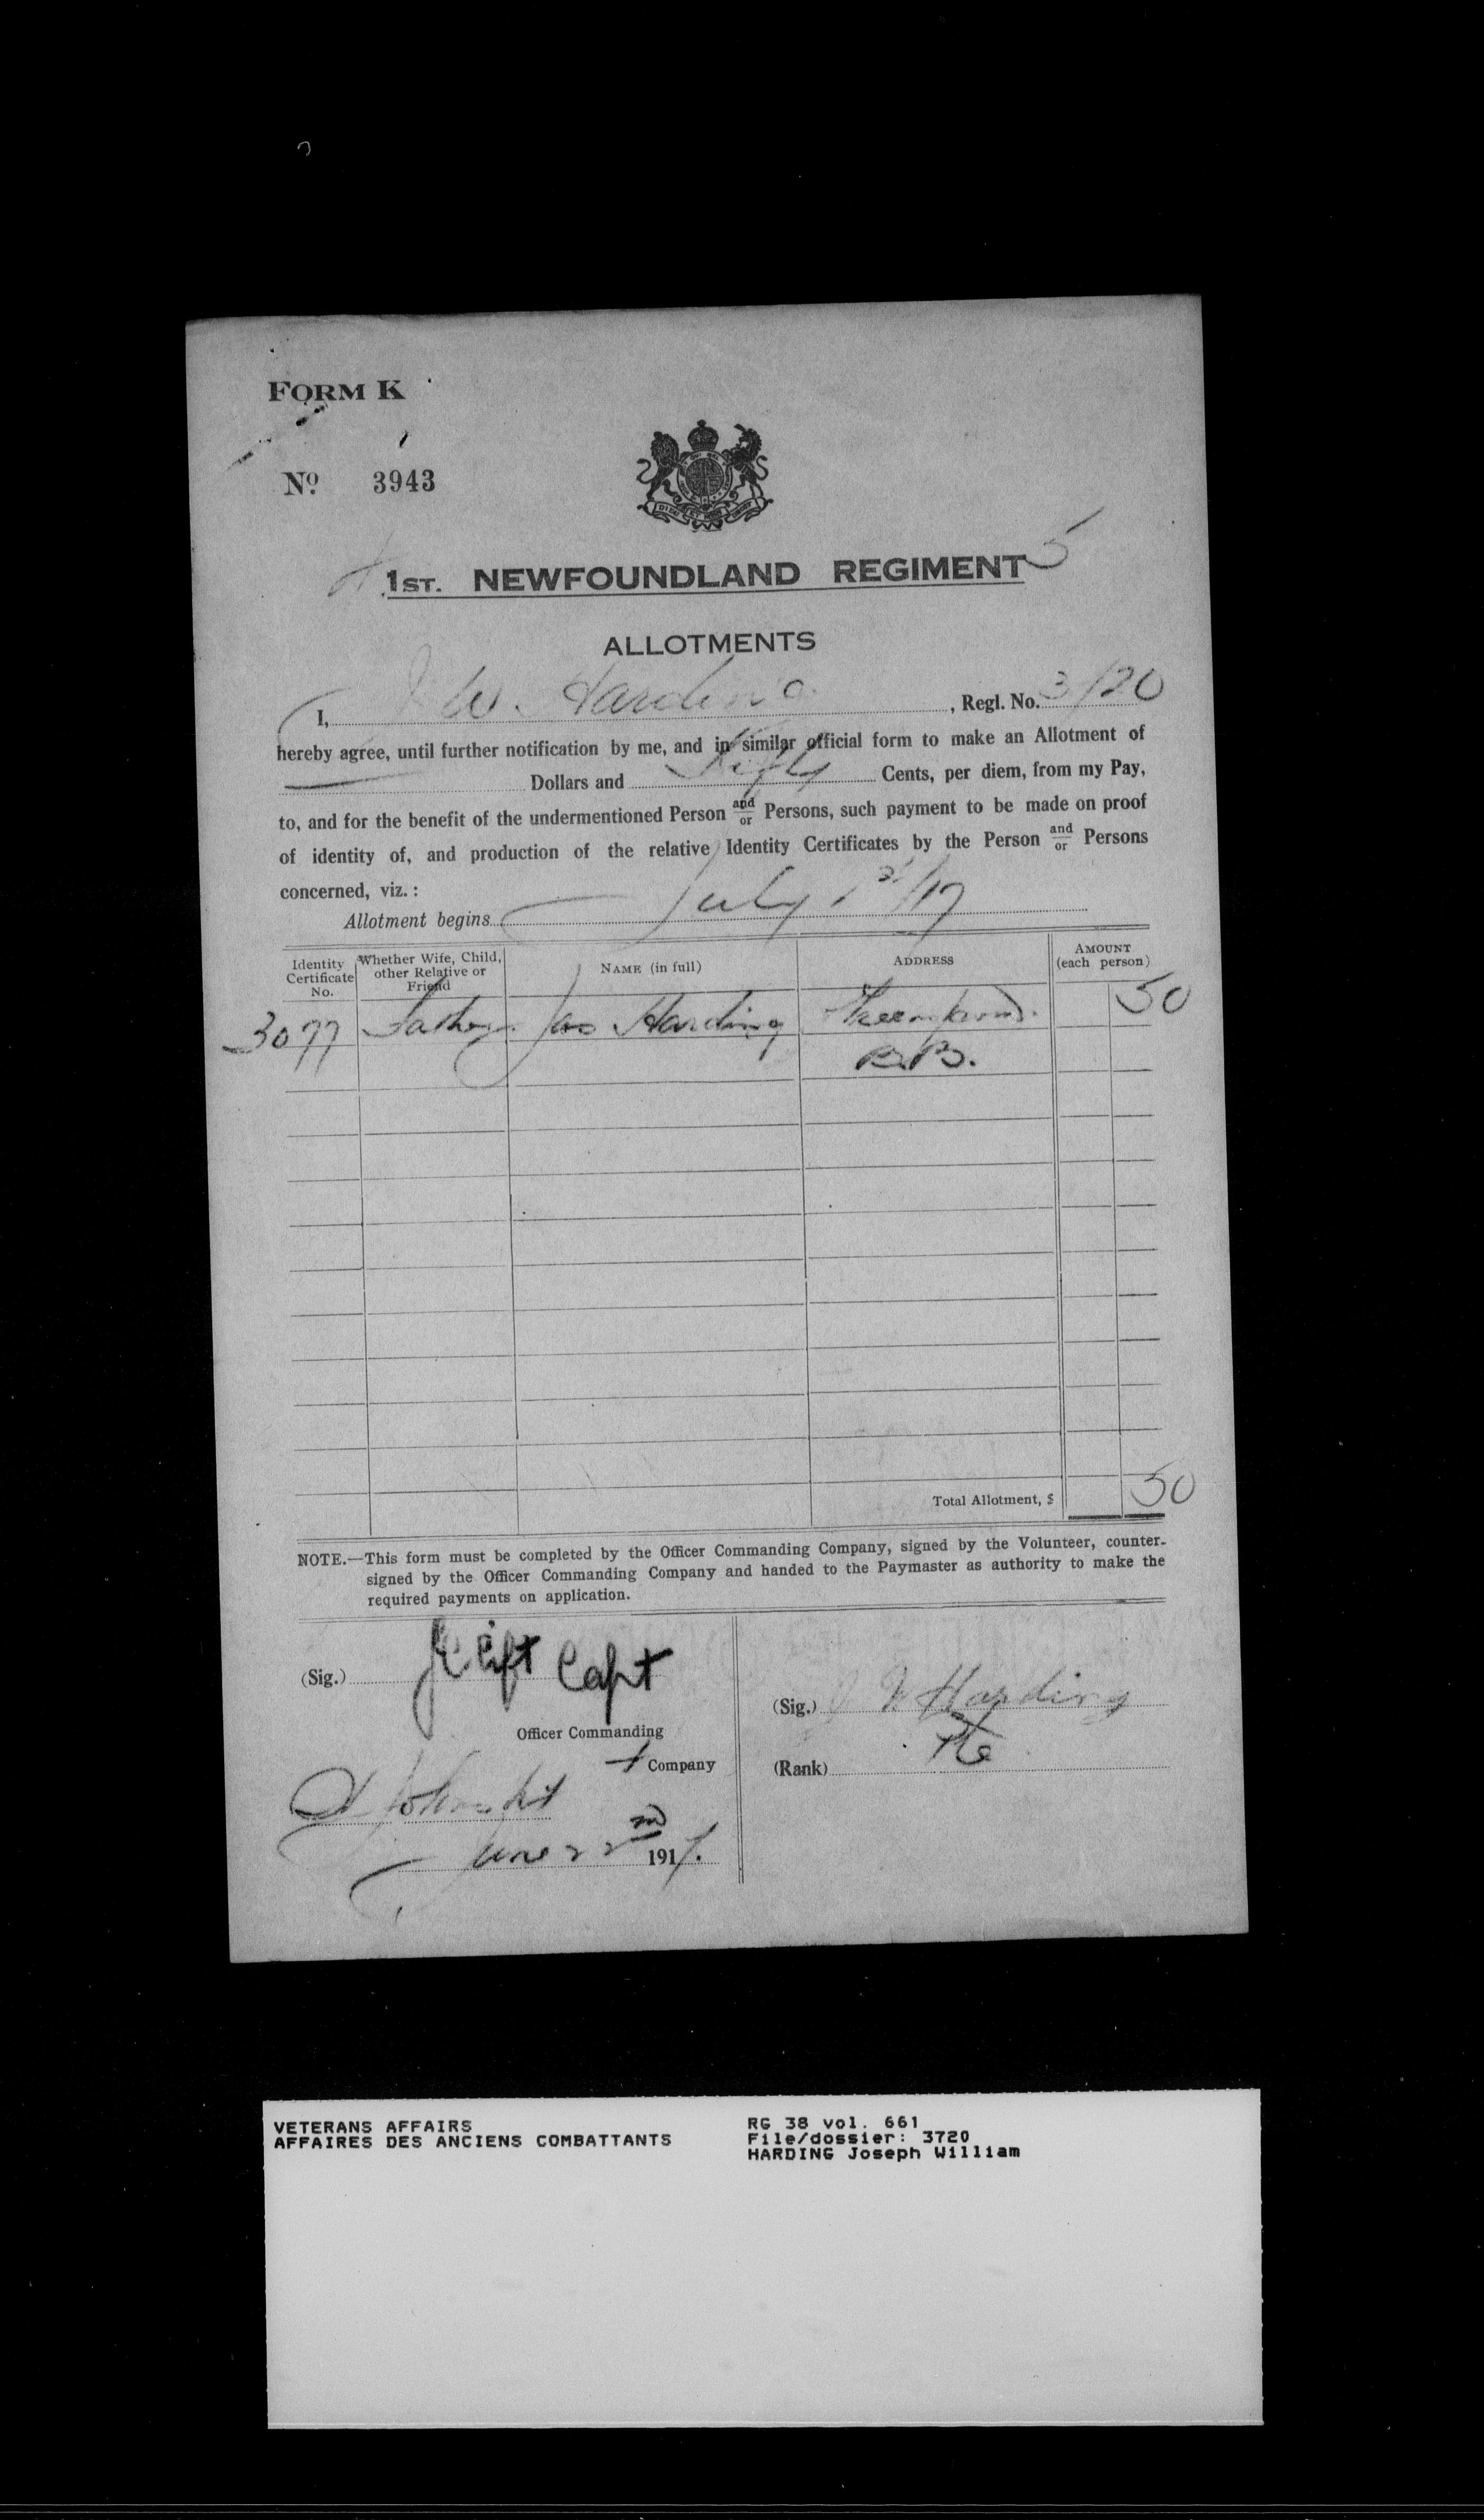 FORM K
No. 3943
1ST. NEWFOUNDLAND REGIMENT 5
ALLOTMENTS
I, J W. Harding, Regl. No. 3720
hereby agree, until further notification by me, and in similar official form to make an Allotment of
Dollars and Fifty Cents, per diem, from my Pay,
to, and for the benefit of the undermentioned Person and/or Persons, such payment to be made on proof
of identity of, and production of the relative Identity Certificates by the Person and/or Persons
concerned, viz. :
Allotment begins July 1st/17
Identity Certificate No. Whether Wife, Child, other Relative or Friend NAME (in full) ADDRESS AMOUNT (each person)
3077 Father Jas Harding 50
B.B.
Total Allotment, $ 50
NOTE.—This form must be completed by the Officer Commanding Company, signed by the Volunteer, counter-
signed by the Officer Commanding Company and handed to the Paymaster as authority to make the
required payments on application.
(Sig.) Clift Capt
Officer Commanding
Company
June 22nd 1917.
(Sig.) J W Harding
(Rank) Pte
VETERANS AFFAIRS
AFFAIRES DES ANCIENS COMBATTANTS
RG 38 vol. 661
File/dossier: 3720
HARDING Joseph William